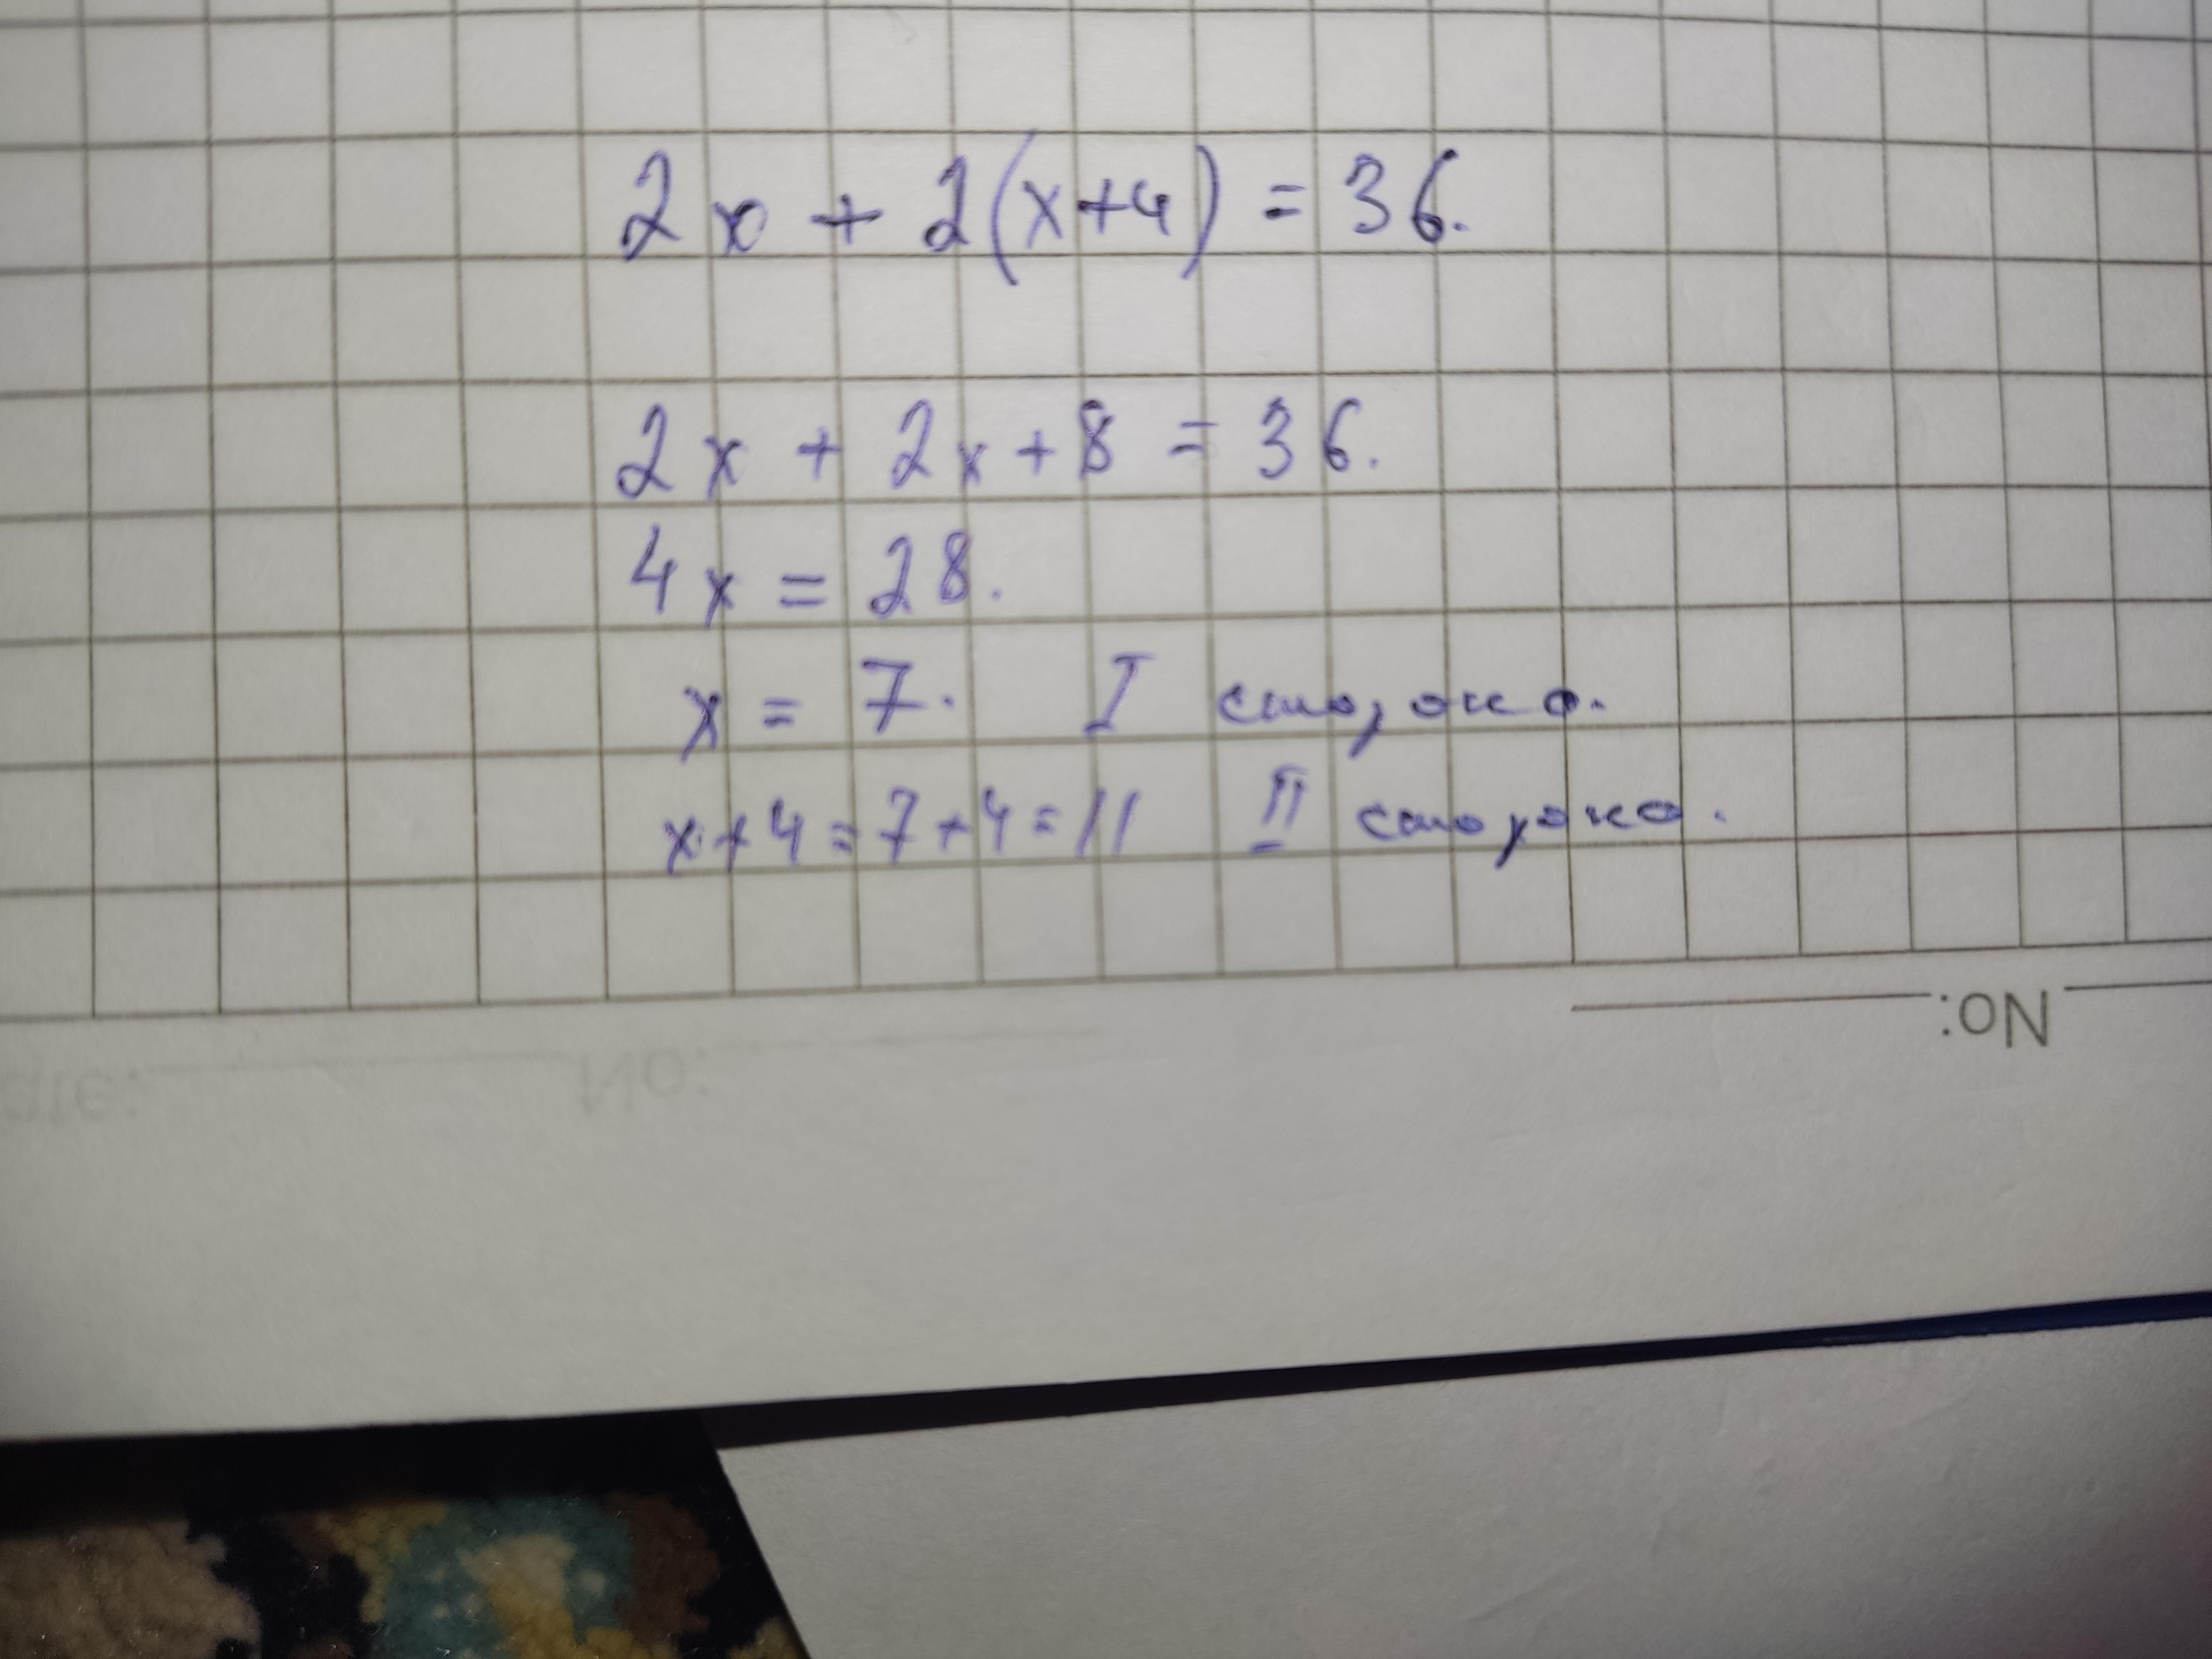 2x + 2(x+4) = 36.
2x + 2x + 8 = 36.
4x = 28.
x = 7. I сторона.
x+4 = 7+4 = 11 II сторона.
No:
No: